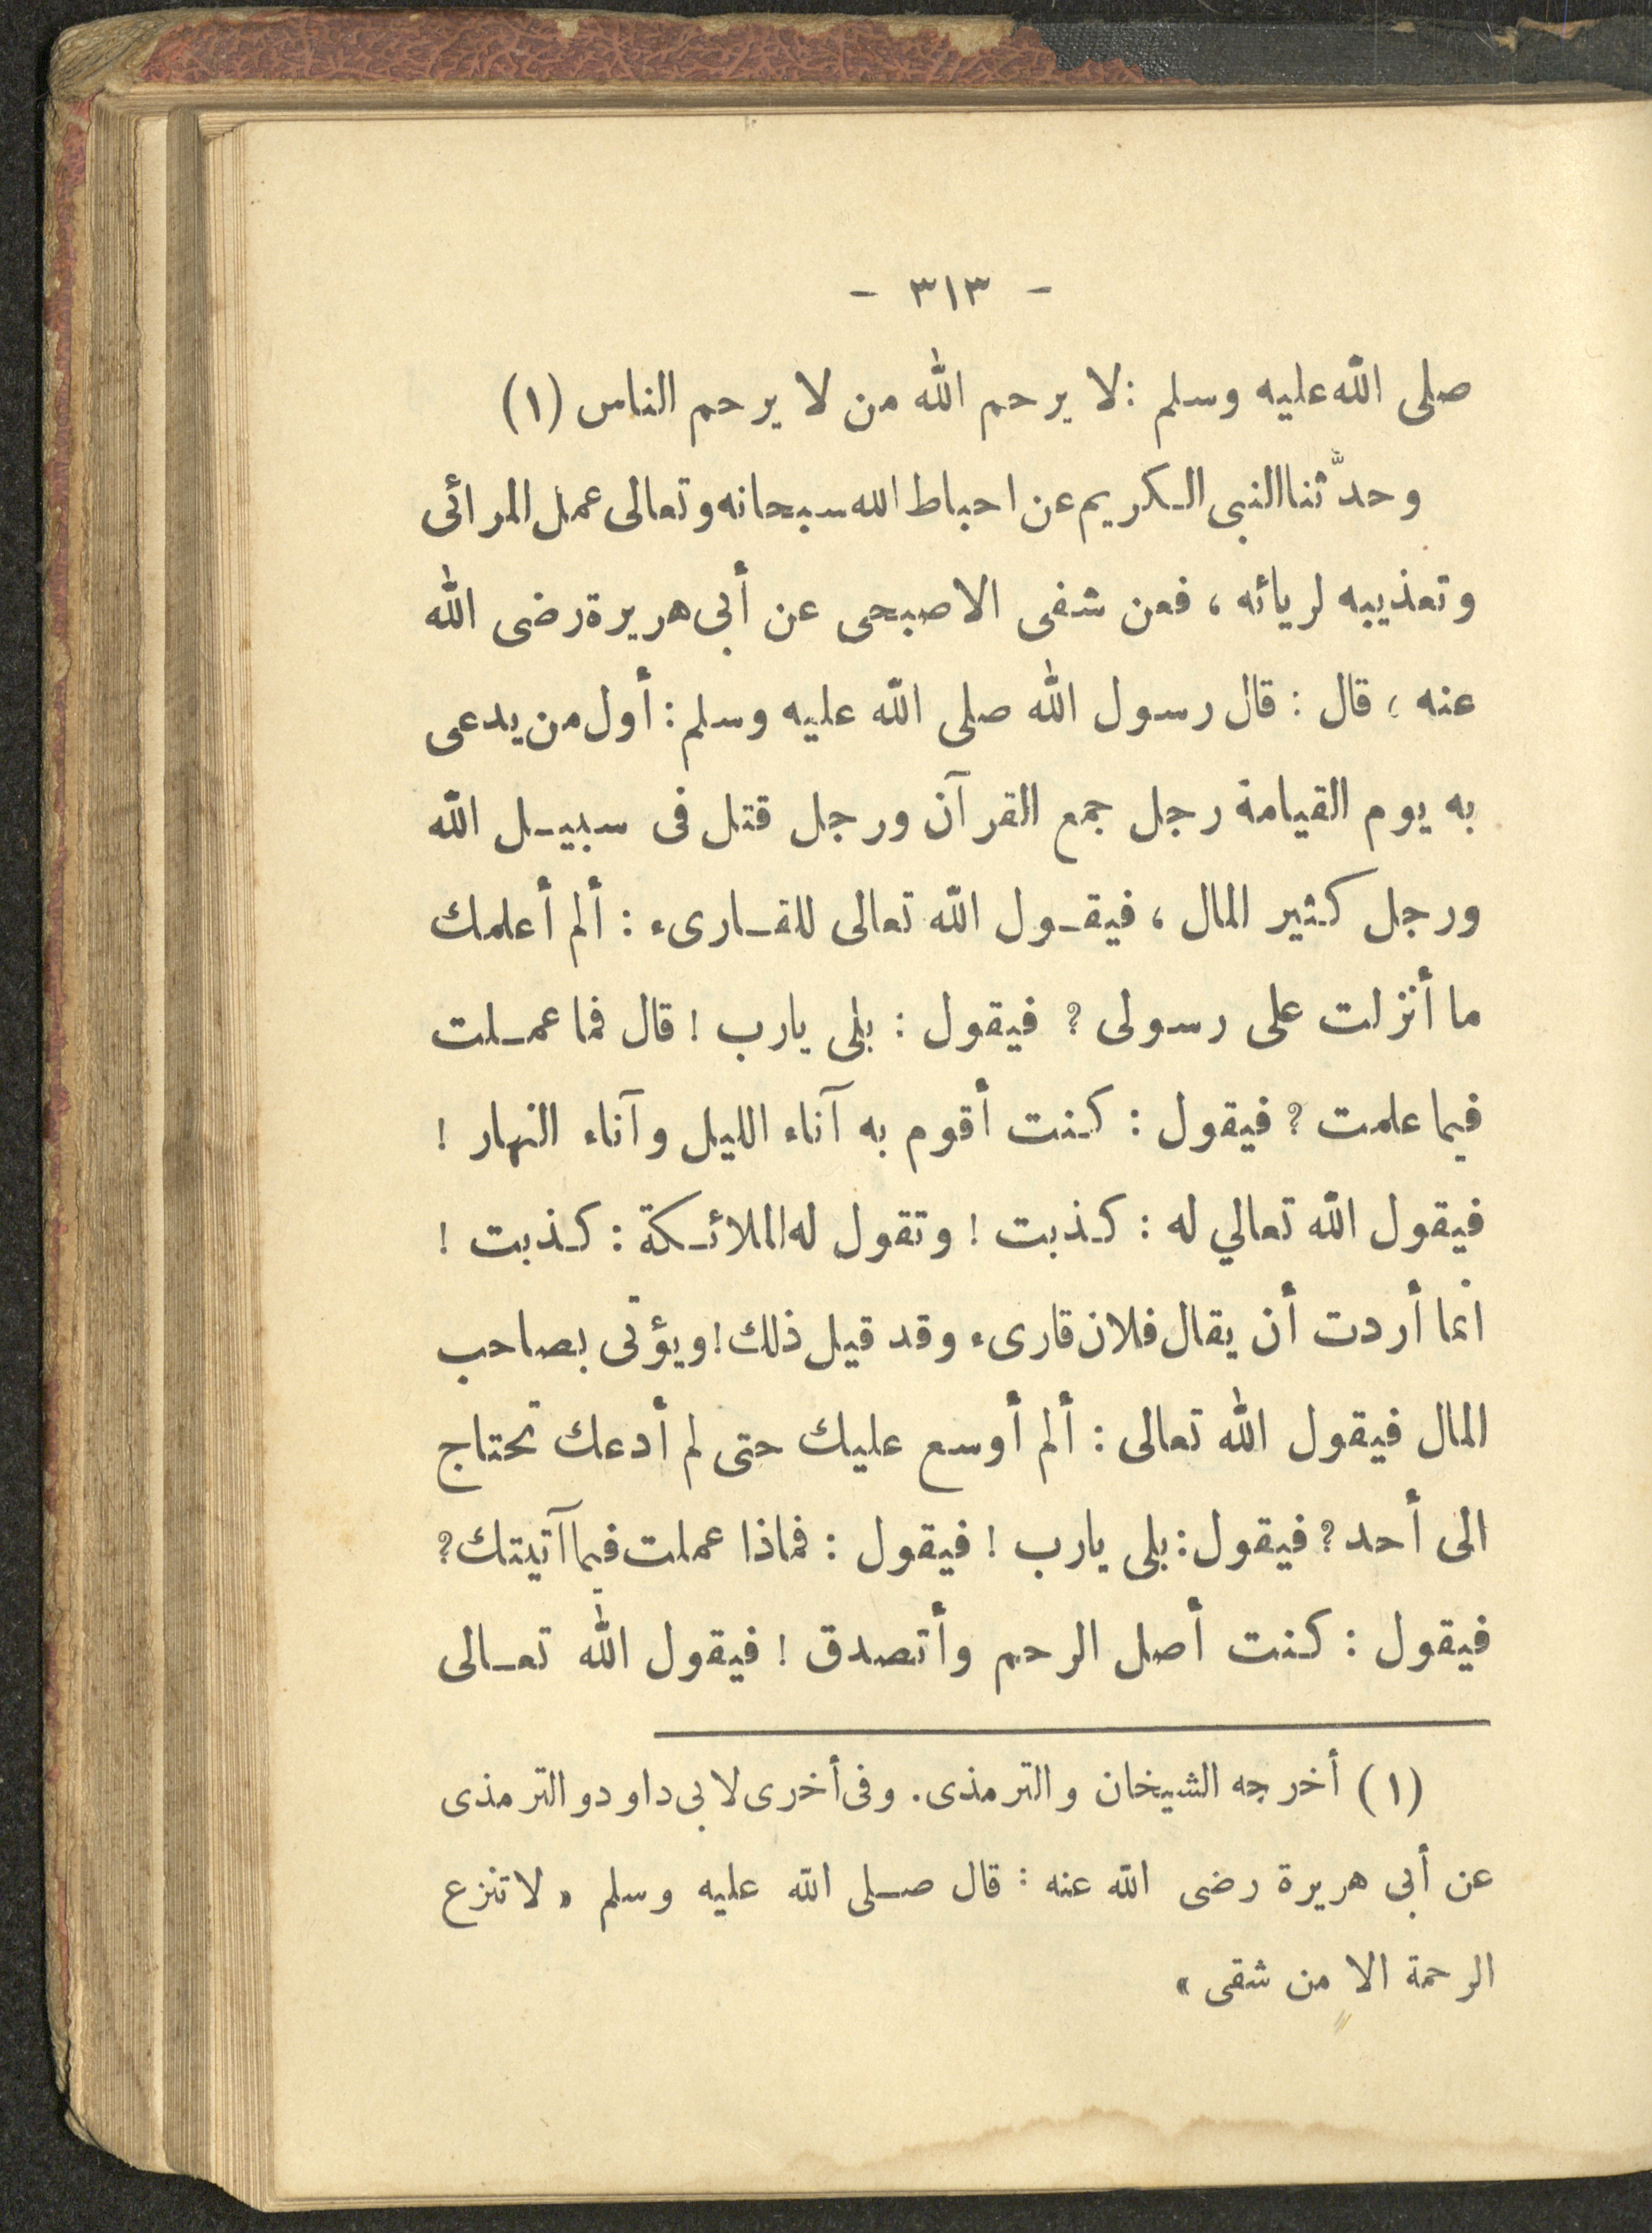 - ٣١٣ -
صلى الله عليه وسلم : لا يرحم الله من لا يرحم الناس (١)
وحدَّثنا النبى الكريم عن احباط الله سبحانه وتعالى عمل المرائى
وتعذيبه لريائه ، فعن شفى الاصبحى عن أبى هريرة رضى الله
عنه ، قال : قال رسول الله صلى الله عليه وسلم : أول من يدعى
به يوم القيامة رجل جمع القرآن ورجل قتل فى سبيل الله
ورجل كثير المال ، فيقول الله تعالى للقارىء : ألم أعلمك
ما أنزلت على رسولى ؟ فيقول : بلى يارب ! قال فما عملت
فيما علمت ؟ فيقول : كنت أقوم به آناء الليل وآناء النهار !
فيقول الله تعالي له : كذبت ! وتقول له الملائكة : كذبت !
انما أردت أن يقال فلان قارىء وقد قيل ذلك ! ويؤتى بصاحب
المال فيقول الله تعالى : ألم أوسع عليك حتى لم أدعك تحتاج
الى أحد ؟ فيقول : بلى يارب ! فيقول : فماذا عملت فيما آتيتك ؟
فيقول : كنت أصل الرحم وأتصدق ! فيقول الله تعالى
(١) أخرجه الشيخان والترمذى . وفى أخرى لابى داود والترمذى
عن أبى هريرة رضى الله عنه : قال صلى الله عليه وسلم « لا تنزع
الرحمة الا من شقى »